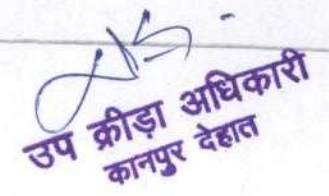 उप क्रीड़ा अधिकारी
कानपुर देहात